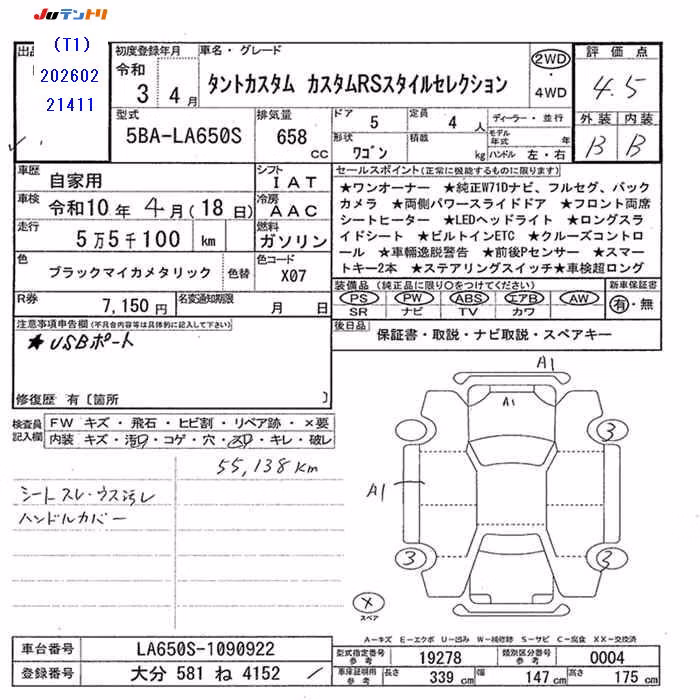 JUテントリ
出品
(T1)
202602
21411
初度登録年月
令和
3 4月
車名・グレード
タントカスタム カスタムRSスタイルセレクション
2WD
・
4WD
評価点
4.5
外装 内装
B B
型式
5BA-LA650S
排気量
658
CC
ドア
5
定員
4 人
形状
ワゴン
積載
kg
ディーラー・並行
モデル
年式 年
ハンドル 左・右
車歴
自家用
シフト
IAT
車検
令和10年 4月(18日)
冷房
AAC
走行
5万5千100 km
燃料
ガソリン
色
ブラックマイカメタリック
色替
色コード
X07
R券
7,150円
名変通知期限
月 日
セールスポイント(正常に機能するものに限ります)
★ワンオーナー ★純正W71Dナビ、フルセグ、バック
カメラ ★両側パワースライドドア ★フロント両席
シートヒーター ★LEDヘッドライト ★ロングスラ
イドシート ★ビルトインETC ★クルーズコントロ
ール ★車輛逸脱警告 ★前後Pセンサー ★スマー
トキー2本 ★ステアリングスイッチ★車検超ロング
装備品(純正品に限り○をつけてください)
PS PW ABS エアB AW
SR ナビ TV カワ
新車保証書
有・無
後日品
保証書・取説・ナビ取説・スペアキー
注意事項申告欄(不具合内容等は具体的に記入して下さい)
★USBポート
修復歴 有〔箇所 〕
検査員
記入欄
FW キズ・飛石・ヒビ割・リペア跡・×要
内装 キズ・汚れ・コゲ・穴・スレ・キレ・破レ
55,138km
シートスレ・ウス汚レ
ハンドルカバー
A1
A1
A1
3
3
3
×
スペア
A－キズ E－エクボ U－凹み W－補修跡 S－サビ C－腐食 XX－交換済
車台番号
LA650S-1090922
登録番号
大分 581 ね 4152
型式指定番号
参考
19278
類別区分番号
参考
0004
車庫証明用
参考
長さ
339 cm
幅
147 cm
高さ
175 cm